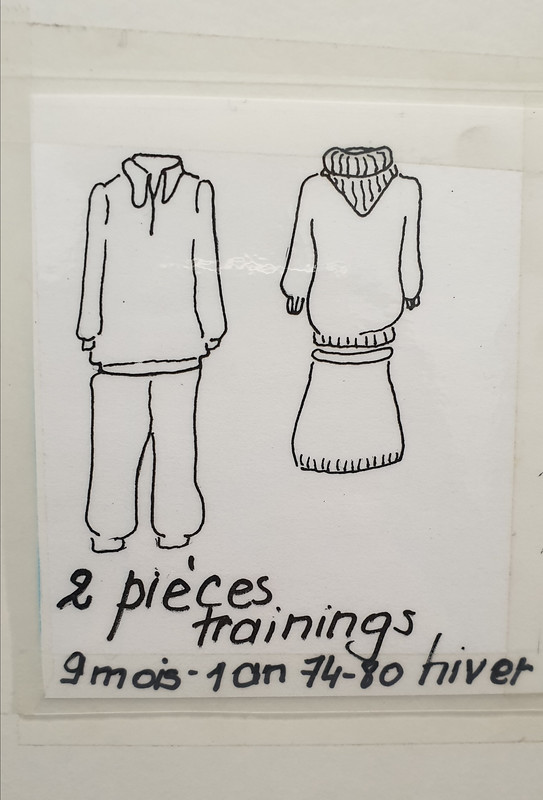 2 pièces
trainings
9 mois - 1 an 74-80 hiver